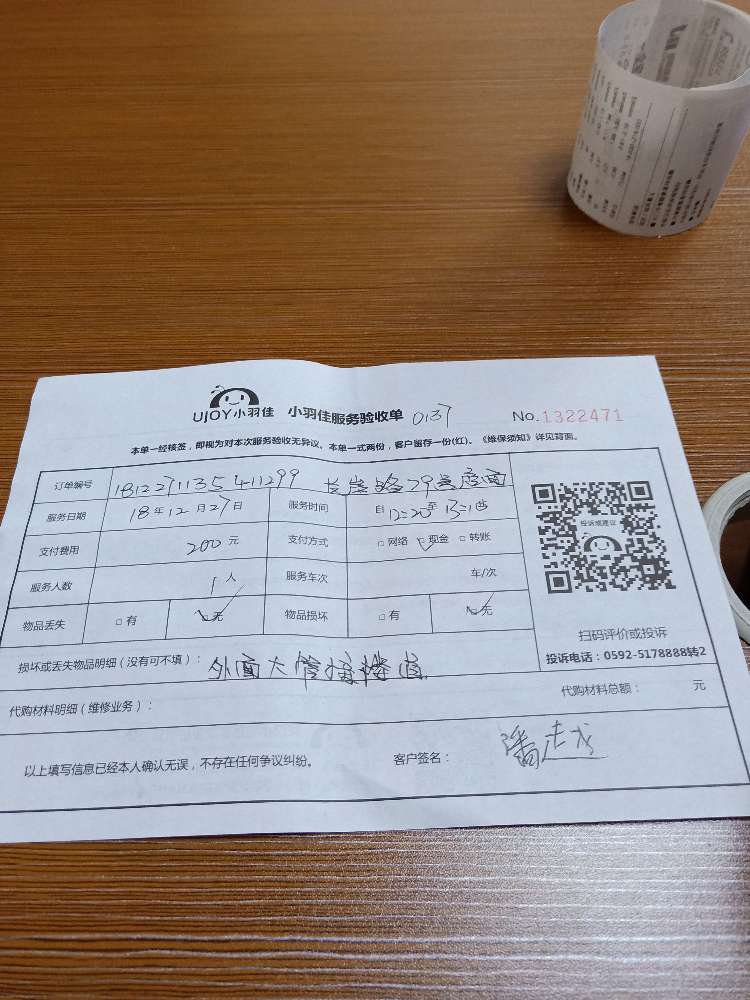 UJOY小羽佳 小羽佳服务验收单 0137 No.1322471
本单一经核签，即视为对本次服务验收无异议。本单一式两份，客户留存一份(红)。《维保须知》详见背面。
订单编号 181227113541 1299 长 路79号店面
服务日期 18年12月27日 服务时间 自12:20至13:10
支付费用 200元 支付方式 □网络 □现金 □转账
服务人数 1人 服务车次 车/次
物品丢失 □有 □无 物品损坏 □有 □无
损坏或丢失物品明细（没有可不填）： 外面大管
代购材料明细（维修业务）： 代购材料总额： 元
以上填写信息已经本人确认无误，不存在任何争议纠纷。 客户签名： 潘志
投诉或建议
扫码评价或投诉
投诉电话：0592-5178888转2